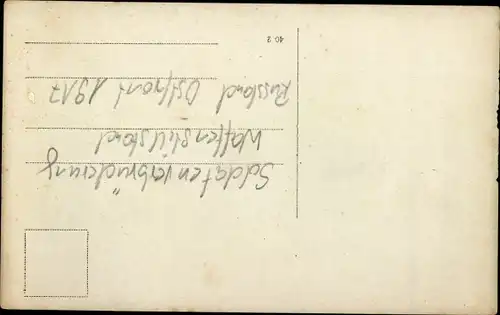 Soldatenverbrüderung
Waffenstillstand
Russland Ostfront 1917
40 2